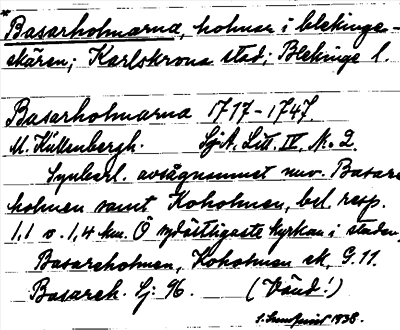 *
Basarholmarna, holmar i blekinge-
skären; Karlskrona stad; Blekinge l.
Basarholmarna 1717-1747.
M. Küllenbergh. Sj.A. Litt. IV, Nr. 2.
Synbarl. avsågnamnet nuv. Basare-
holmen samt Koholmen, bel. resp.
1,1 o. 1,4 km. Ö sydöstligaste kyrkan i staden,
Basareholmen, Koholmen ek, G. 11.
Basareh. Sj. 96. (Vänd!)
1938.